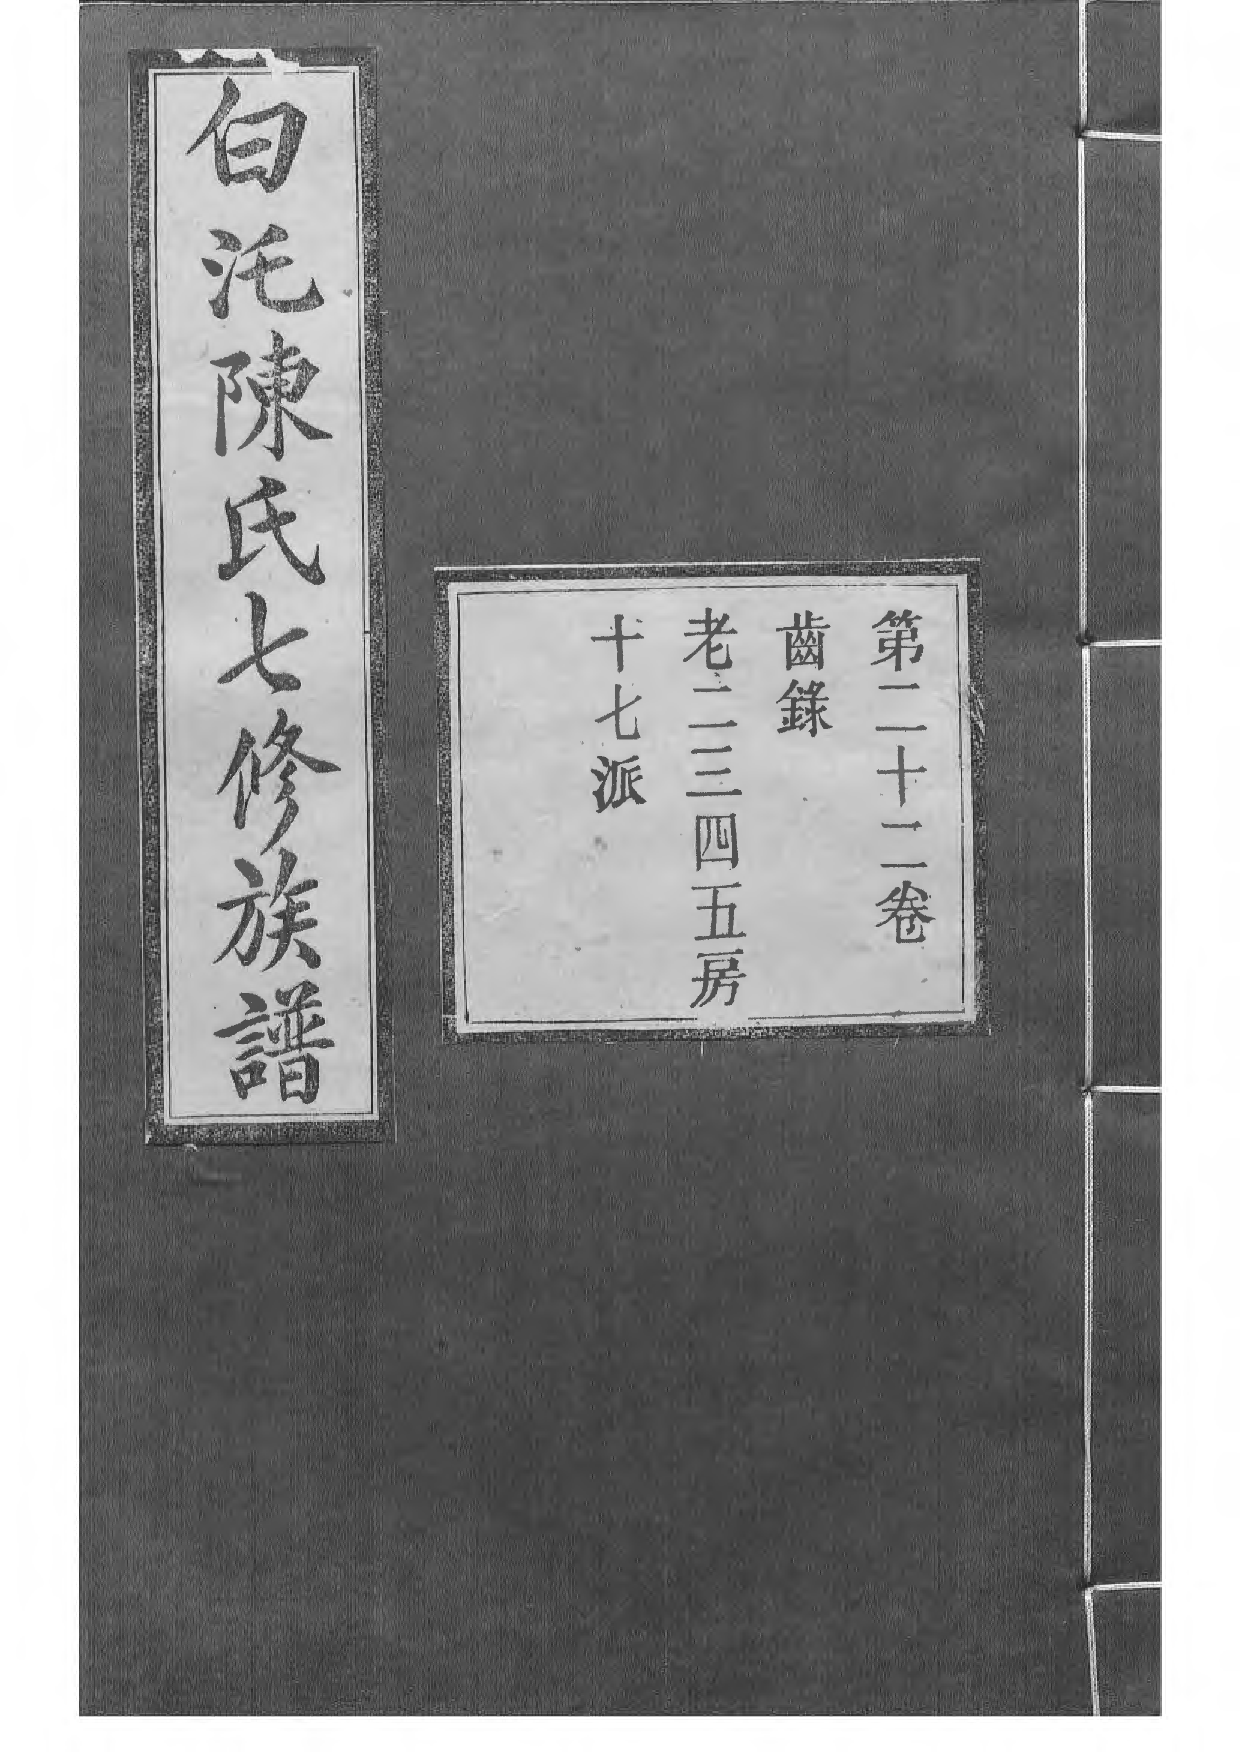 白沱陳氏七修族譜
第二十二卷
齒錄
老二三四五房
十七派